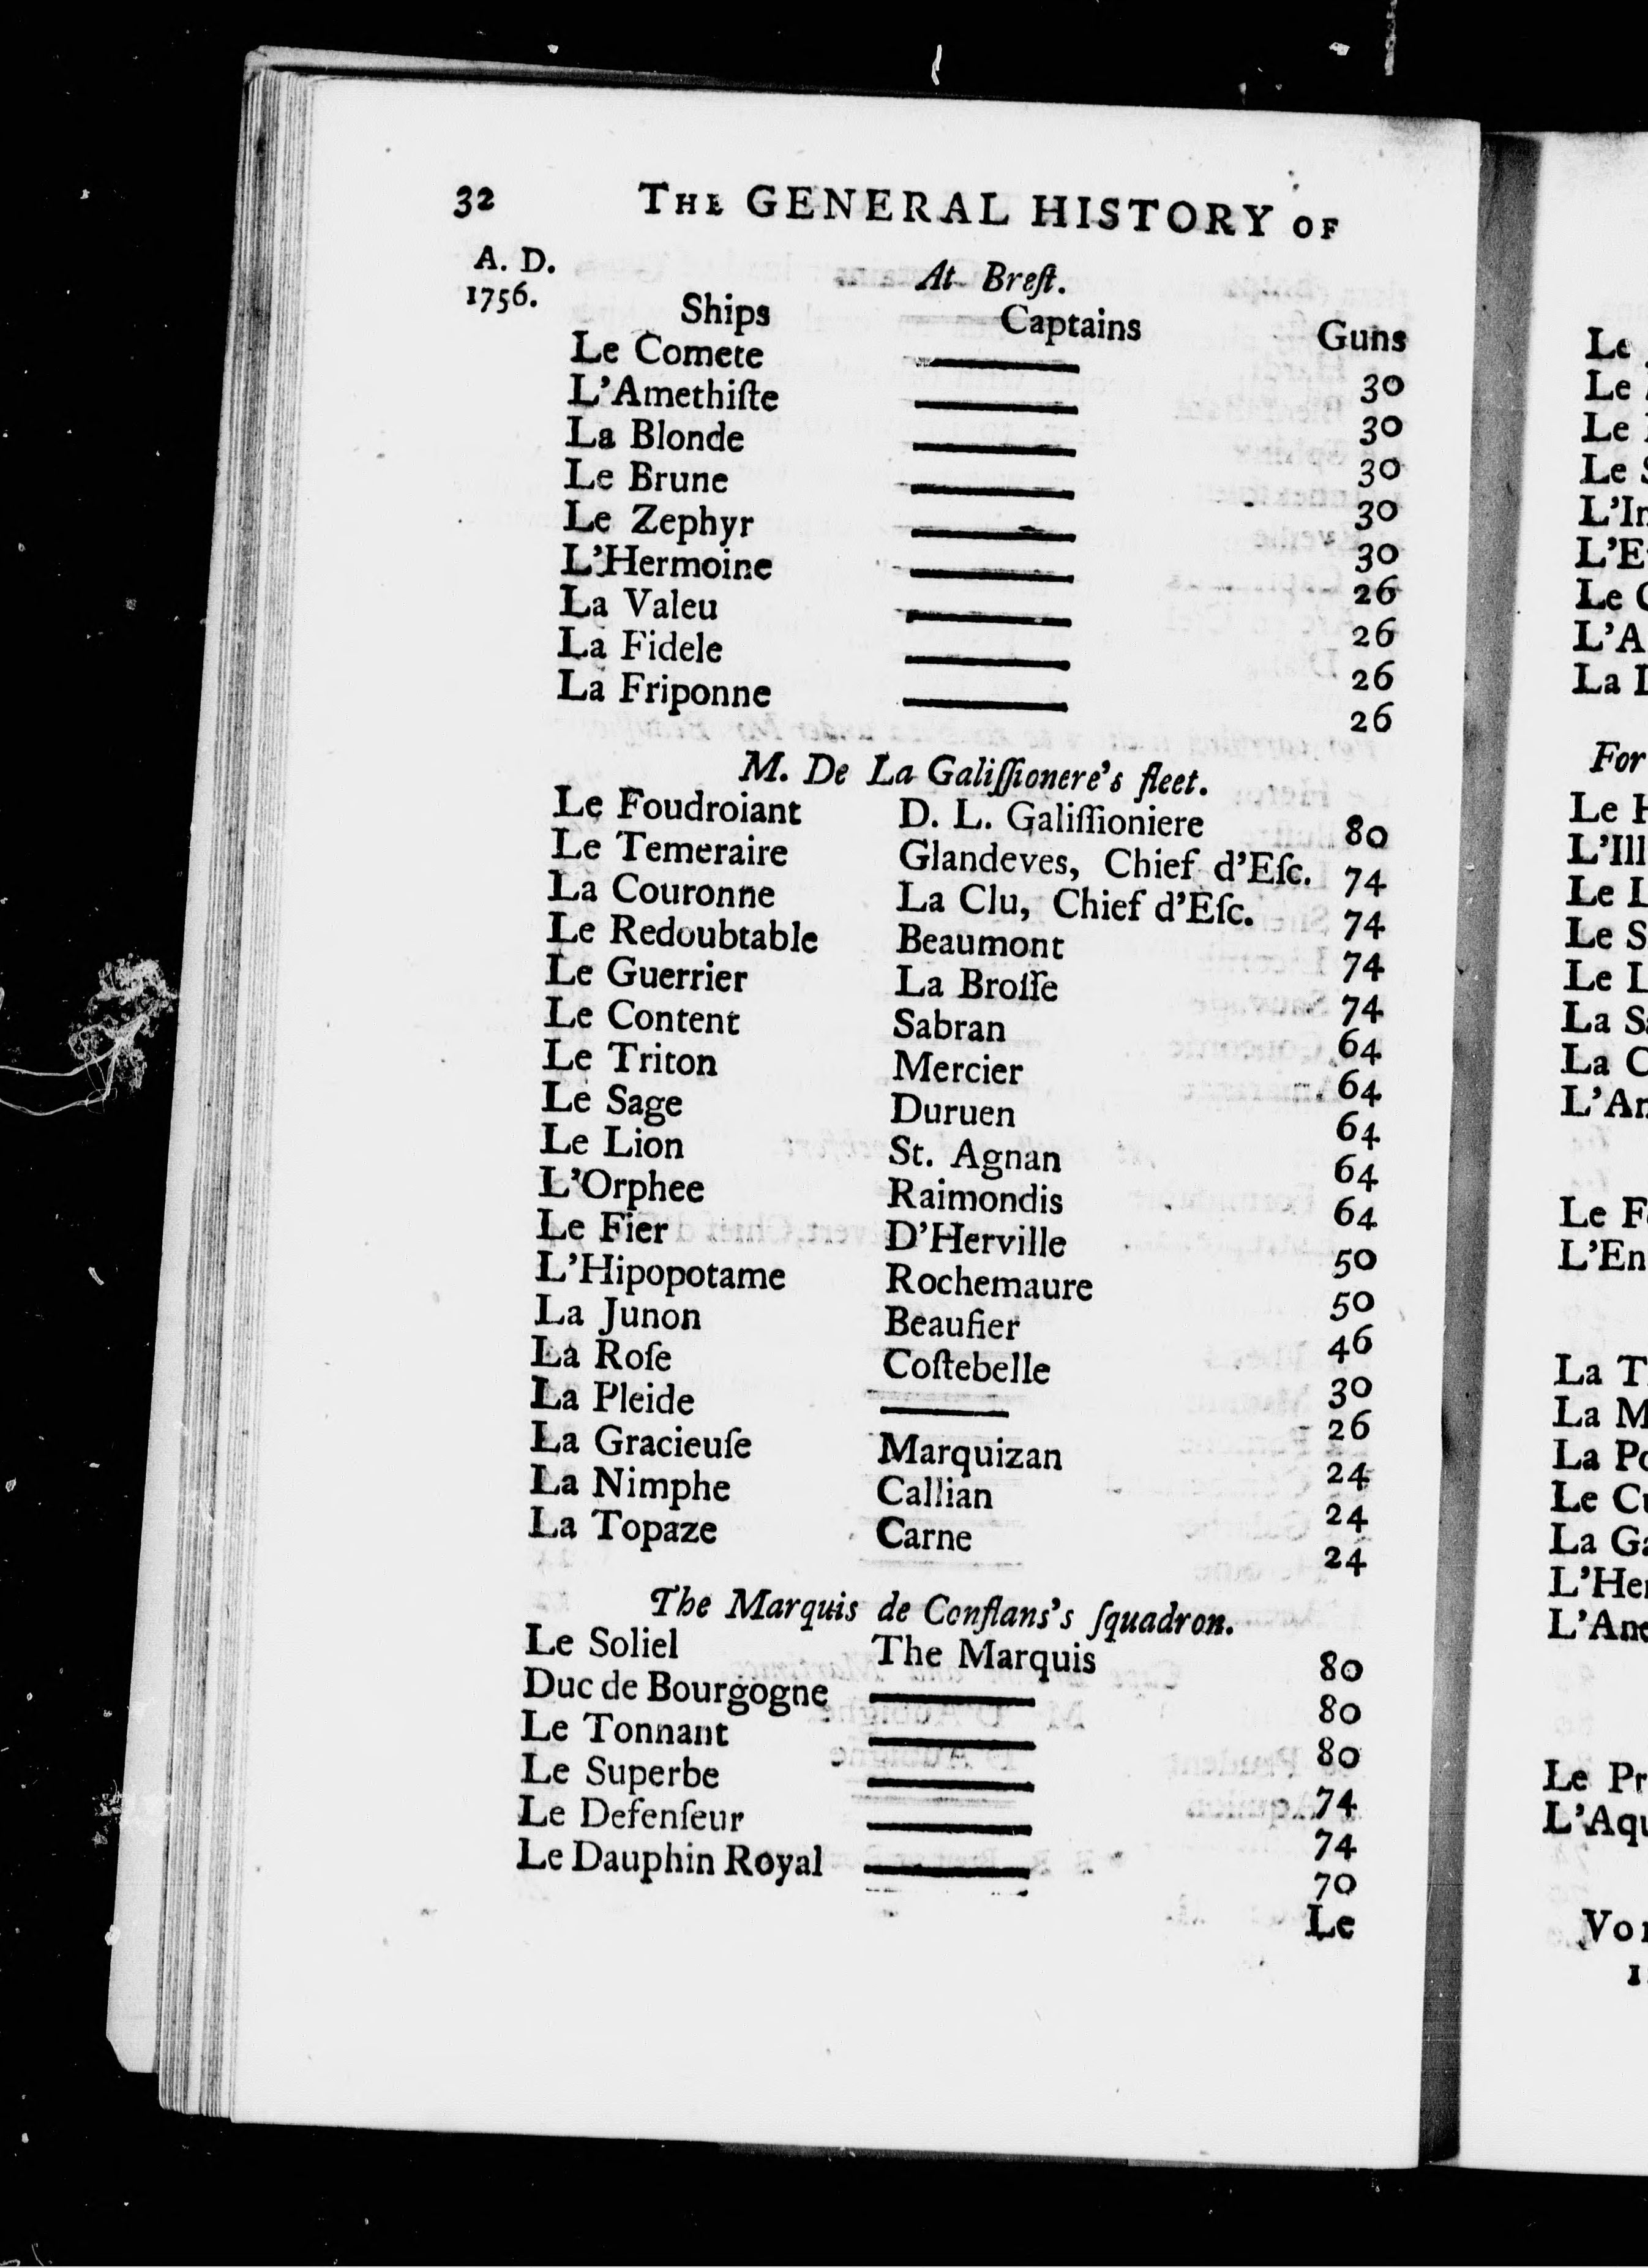 32 THE GENERAL HISTORY OF
A. D.
1756.
At Breſt.
Ships Captains Guns
Le Comete ——— 30
L'Amethiſte ——— 30
La Blonde ——— 30
Le Brune ——— 30
Le Zephyr ——— 30
L'Hermoine ——— 26
La Valeu ——— 26
La Fidele ——— 26
La Friponne ——— 26
M. De La Galiſſionere's fleet.
Le Foudroiant D. L. Galiſſioniere 80
Le Temeraire Glandeves, Chief d'Eſc. 74
La Couronne La Clu, Chief d'Eſc. 74
Le Redoubtable Beaumont 74
Le Guerrier La Broiſſe 74
Le Content Sabran 64
Le Triton Mercier 64
Le Sage Duruen 64
Le Lion St. Agnan 64
L'Orphee Raimondis 64
Le Fier D'Herville 50
L'Hipopotame Rochemaure 50
La Junon Beauſier 46
La Roſe Coſtebelle 30
La Pleide ——— 26
La Gracieuſe Marquizan 24
La Nimphe Callian 24
La Topaze Carne 24
The Marquis de Conflans's ſquadron.
Le Soliel The Marquis 80
Duc de Bourgogne ——— 80
Le Tonnant ——— 80
Le Superbe ——— 74
Le Defenſeur ——— 74
Le Dauphin Royal ——— 70
Le
Le
Le
Le
Le
Le
La
For
Le
Le
Le
Le
La
La
Le
La
La
La
Le
La
Le